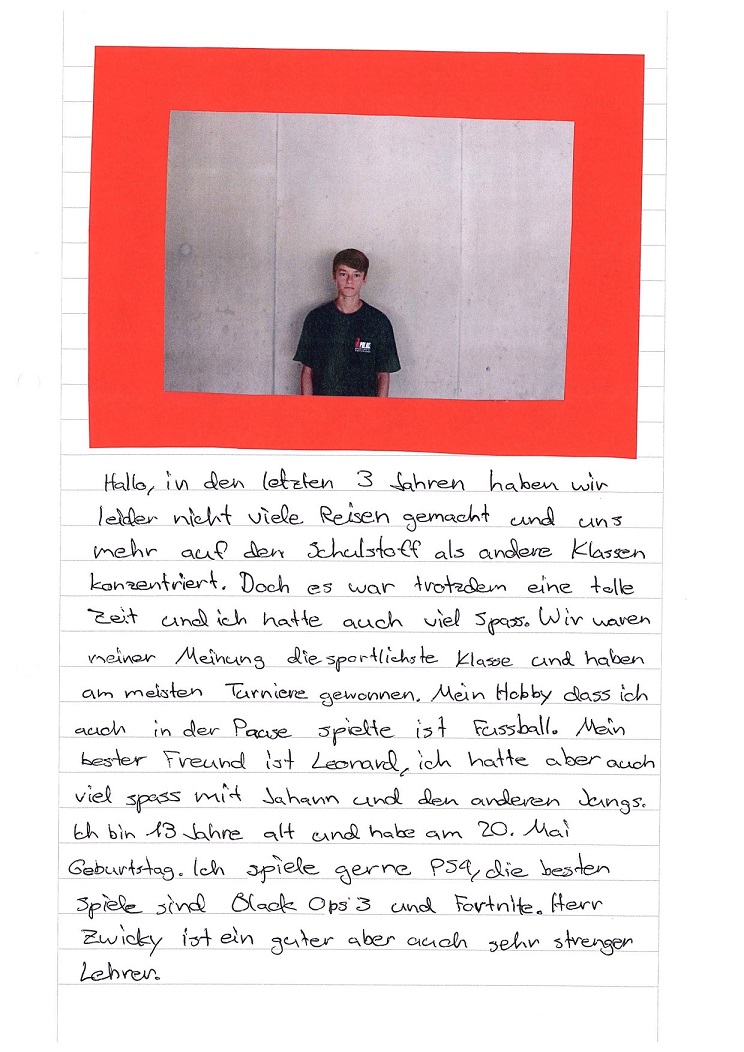 Hallo, in den letzten 3 Jahren haben wir
leider nicht viele Reisen gemacht und uns
mehr auf den Schulstoff als andere Klassen
konzentriert. Doch es war trotzdem eine tolle
Zeit und ich hatte auch viel Spass. Wir waren
meiner Meinung die sportlichste Klasse und haben
am meisten Turniere gewonnen. Mein Hobby dass ich
auch in der Pause spielte ist Fussball. Mein
bester Freund ist Leonard, ich hatte aber auch
viel spass mit Jahann und den anderen Jungs.
Ich bin 13 Jahre alt und habe am 20. Mai
Geburtstag. Ich spiele gerne PS4, die besten
Spiele sind Black Ops 3 und Fortnite. Herr
Zwicky ist ein guter aber auch sehr strenger
Lehrer.